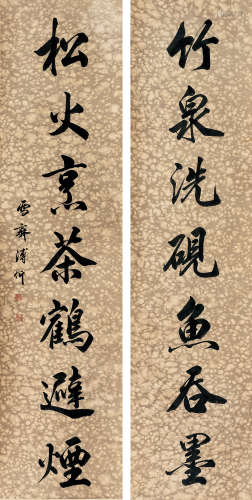 竹泉洗硯魚吞墨
松火烹茶鶴避煙
雪齋溥伒